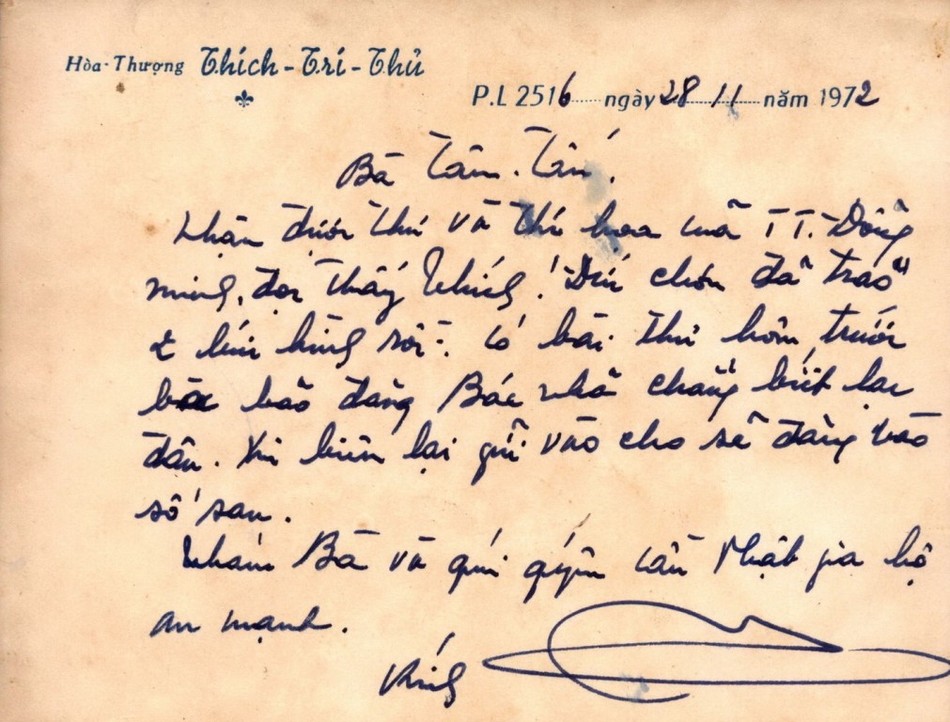 Hòa-Thượng Thích-Trí-Thủ
P.L 2516 ngày 28 11 năm 1972
Bà Tâm-Tấn.
Nhận được thư và thi họa của TT. Đồng
minh, đọc thấy thích! Đíc chôn đã trao
hình rồi. Có bài thi hôm trước
bảo đăng Bác nhã chẳng biết lạc
đâu. Xin biên lại gửi vào cho sẽ đăng vào
số sau.
Thăm Bà và quí quyến cầu Phật gia hộ
an mạnh.
Kính